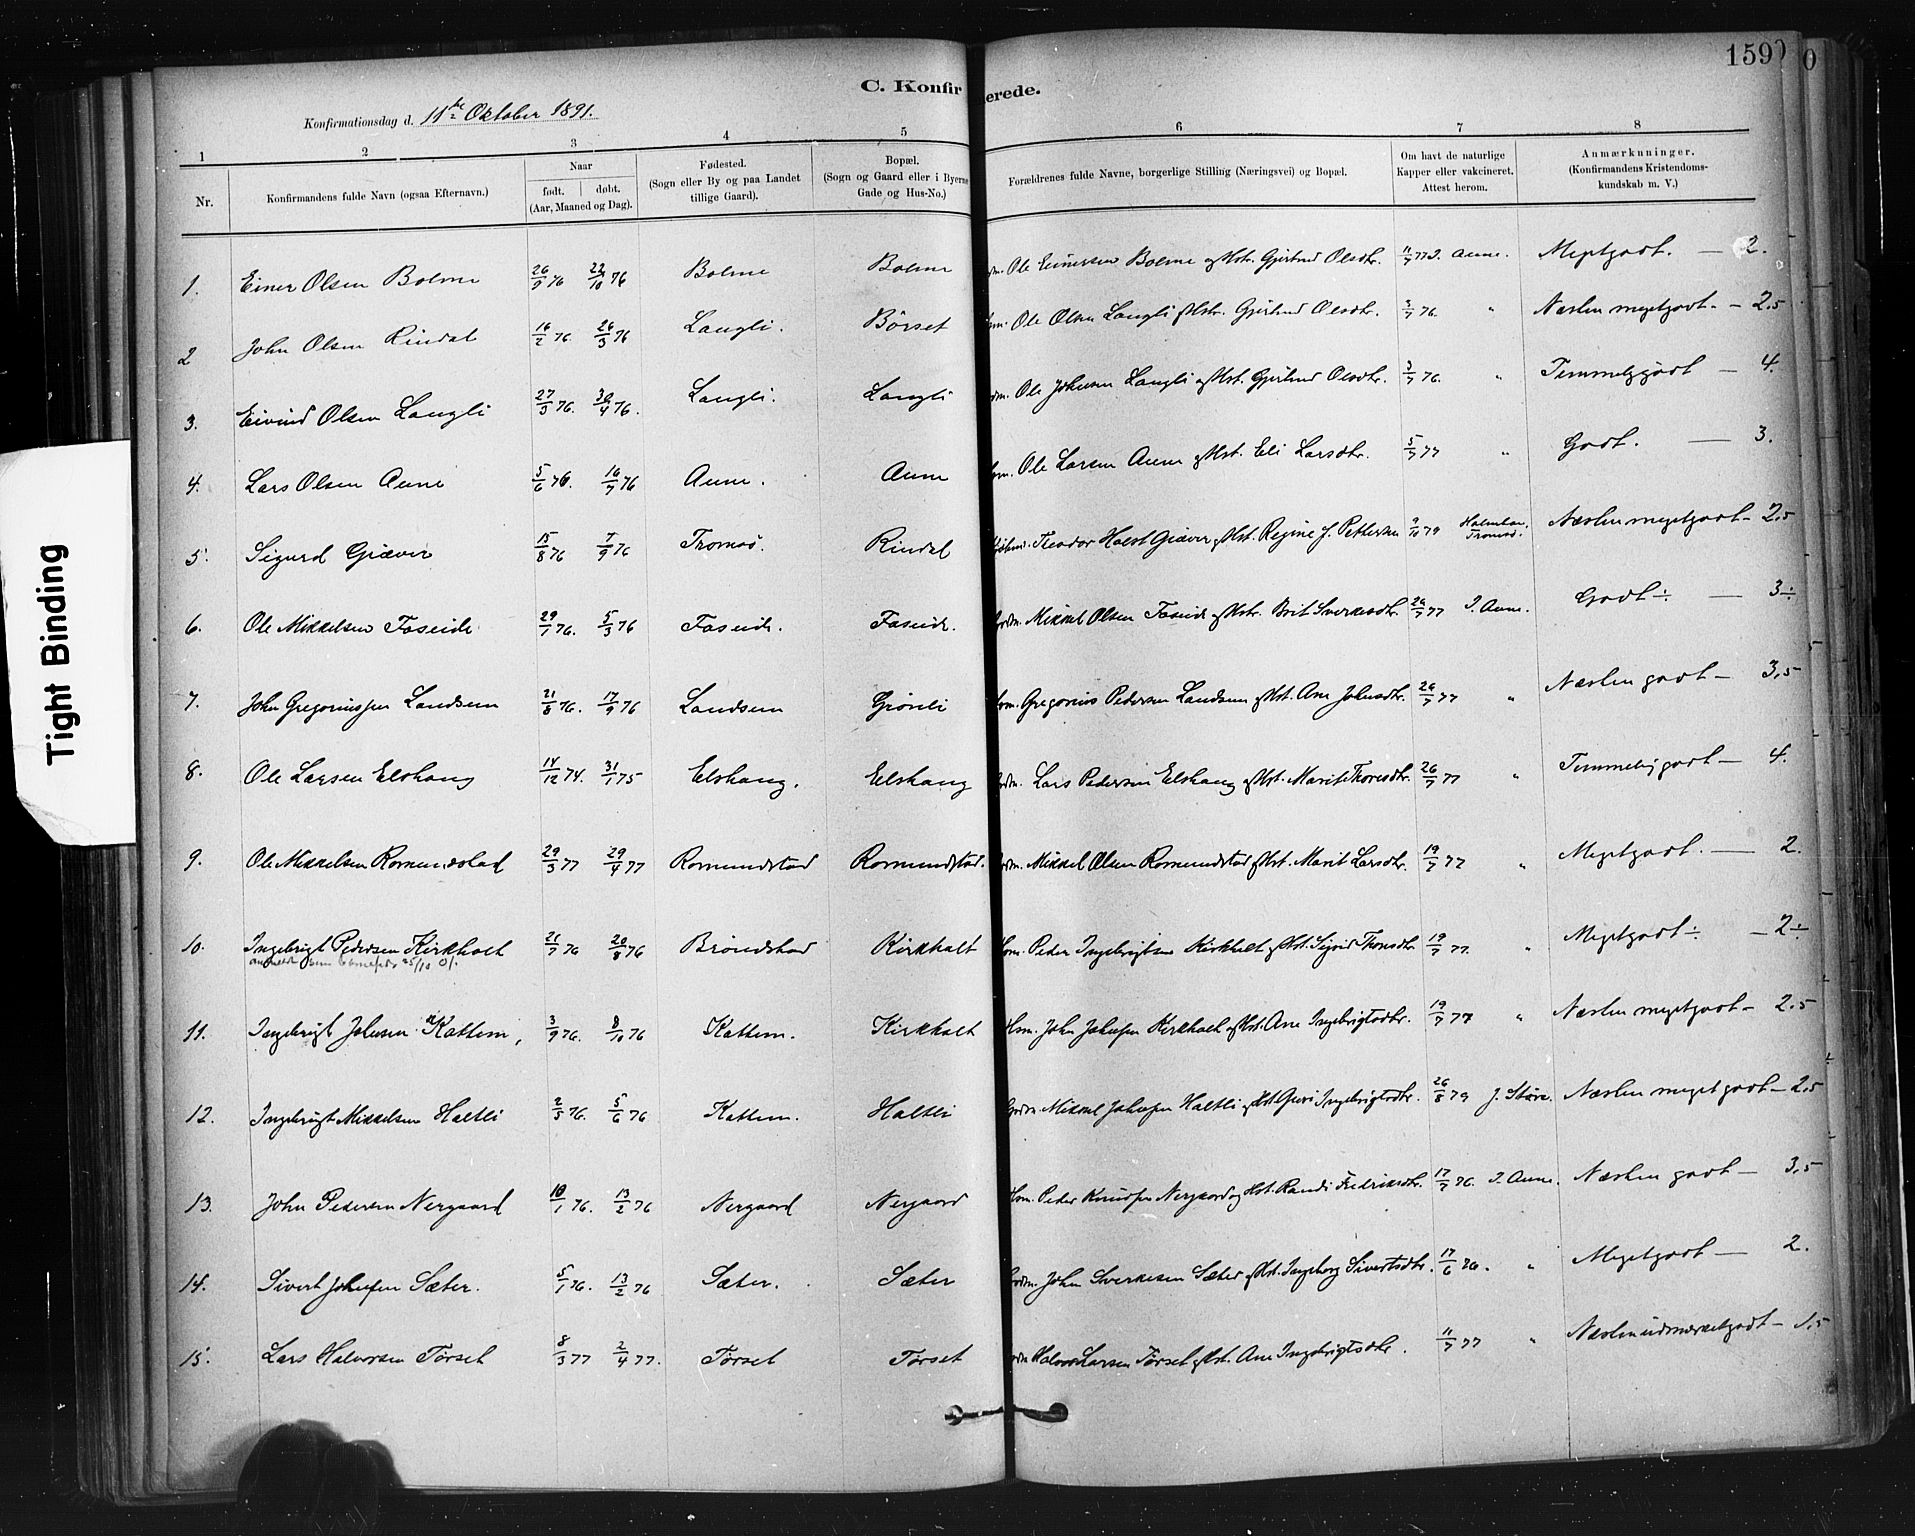 159
0
C. Konfir erede.
Konfirmationsdag d. 11te Oktober 1891.
1 2 3 4 5 6 7 8
Nr.
Konfirmandens fulde Navn (ogsaa Efternavn.)
Naar
født. døbt.
(Aar, Maaned og Dag).
Fødested.
(Sogn eller By og paa Landet
tillige Gaard).
Bopæl.
(Sogn og Gaard eller i Byerne
Gade og Hus-No.)
Forældrenes fulde Navne, borgerlige Stilling (Næringsvei) og Bopæl.
Om havt de naturlige
Kapper eller vakcineret.
Attest herom.
Anmærkninger.
(Konfirmandens Kristendoms-
kundskab m. V.)
1. Einer Olsen Bolme 26/9 76 22/10 76 Bolme Bolme Ole Einersen Bolme og Hst. Gjertrud Olsdtr. 11/7 77 I. Aune. Megetgodt. — 2.
2 John Olsen Rindal 16/2 76. 26/3 76 Langli. Børset Ole Olsen Langli og Hstr. Gjertrud Olsdtr. 3/7 76. " Næsten megetgodt. — 2,5
3. Eivind Olsen Langli 27/3 76. 30/4 76. Langli. Langli Ole Johnsen Langli og Hst. Gjertrud Olsdtr. 3/7 76. " Temmeliggodt — 4.
4. Lars Olsen Aune 5/6 76. 16/7 76 Aune. Aune Ole Larsen Aune og Hst. Eli Larsdtr. 5/7 77 " Godt. — 3.
5. Sigurd Giæver 15/8 76 7/9 76 Tromsø. Rindal Theodor Holst Giæver og Hst. Regine J. Pettersen 9/10 79 Tromsø. Næsten megetgodt — 2,5
6. Ole Mikkelsen Faseide 29/1 76. 5/3 76 Faseide. Faseide. Mikkel Olsen Faseide og Hstr. Brit Sverkesdtr. 26/7 77 I. Aune. Godt ÷ — 3÷
7. John Gregoriussen Landsem 21/8 76. 17/9 76 Landsem Grønli Gregorius Pedersen Landsem og Hst. Ane Johnsdtr. 26/7 77 " Næsten godt — 3,5
8. Ole Larsen Elshaug 14/12 74. 31/1 75 Elshaug. Elshaug Lars Pedersen Elshaug og Hst. Marit Thoresdtr. 26/7 77 " Temmeliggodt — 4.
9. Ole Mikkelsen Romundstad 29/3 77 29/4 77 Romundstad Romundstad. Mikkel Olsen Romundstad og Hst. Marit Larsdtr. 19/7 77 " Megetgodt. — 2.
10. Ingebrigt Pedersen Kirkholt 21/7 76 20/8 76 Brøndstad Kirkholt Hsm. Peder Ingebrigtsen Kirkholt og Hst. Sigrid Thoresdtr. 19/7 77. " Megetgodt ÷. — 2÷
25/10 01.
11. Ingebrigt Johnsen Kattem, 3/9 76. 8/10 76 Kattem. Kirkholt Hsm. John Johnsen Kirkholt og Hst. Ane Ingebrigtsdtr. 19/7 77 " Næsten megetgodt — 2.5
12. Ingebrigt Mikkelsen Haltli 2/5 76. 5/6 76 Kattem. Haltli Mikkel Johnsen Haltli og Hst. Guri Ingebrigtsdtr. 26/8 79 J. Støre. Næsten meget godt — 2,5
13. John Pedersen Nergaard 10/1 76. 13/2 76 Nergaard Nergaard Hsm. Peder Knudsen Nergaard og Hst. Randi Fredriksdtr. 17/7 76. I. Aune. Næsten godt — 3,5
14. Sivert Johnsen Sæter. 5/1 76. 13/2 76 Sæter. Sæter John Sverkesen Sæter og Hst. Ingeborg Sivertsdtr. 17/6 76. " Megetgodt — 2.
15. Lars Halvorsen Tørset 8/3 77 2/4 77. Tørset Tørset Halvor Larsen Tørset og Hst. Ane Ingebrigtsdtr. 11/7 77 " Næsten udmærketgodt — 1,5
Tight Binding